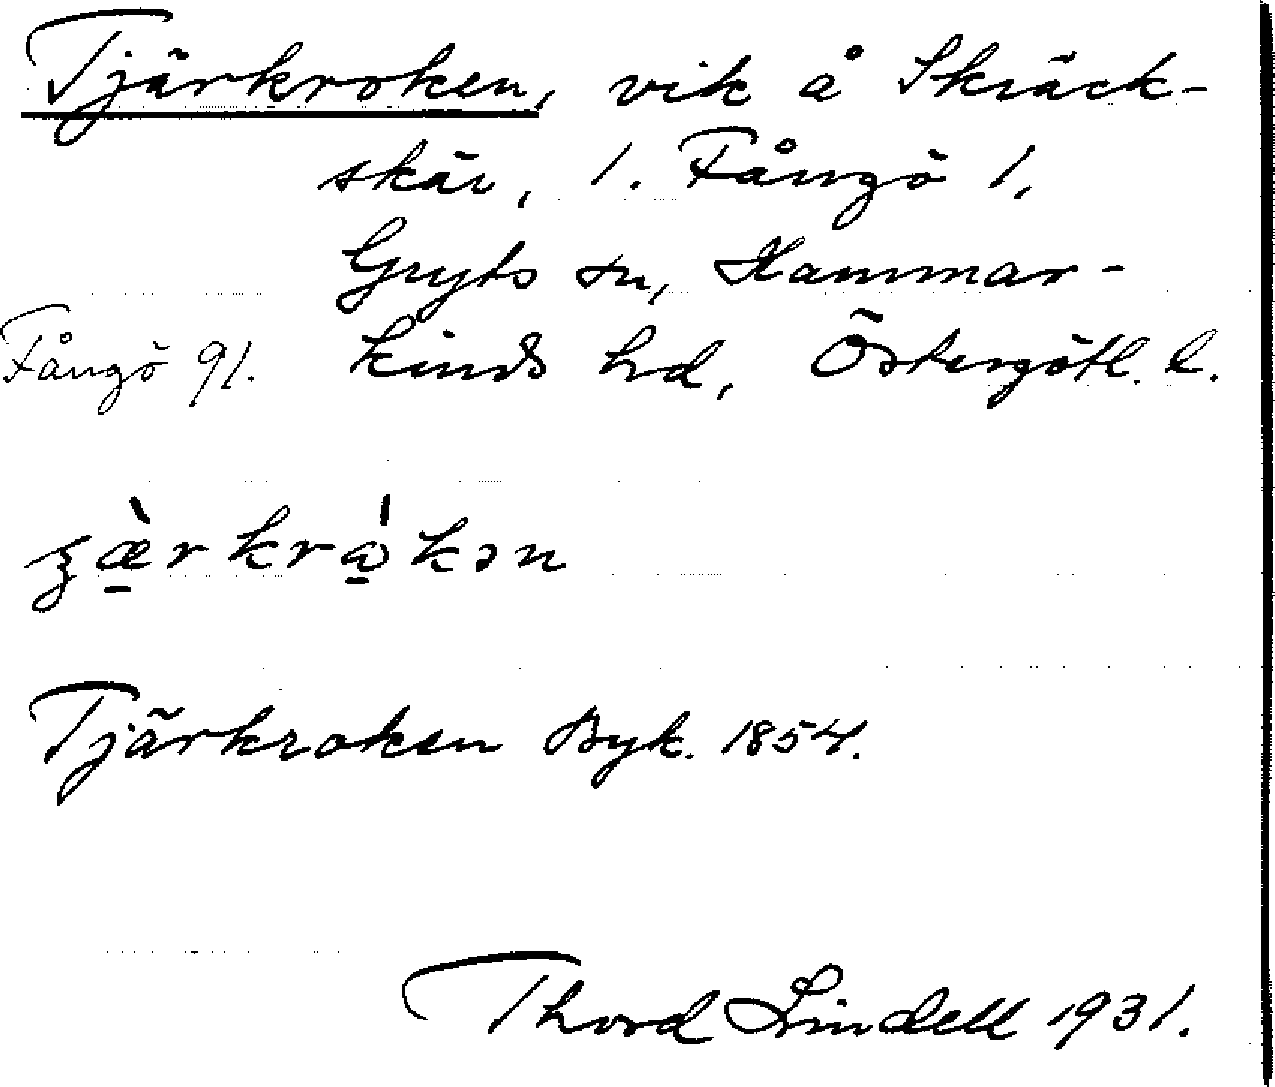 Tjärkroken, vik å Skräck-
skär, 1. Fångö 1,
Gryts sn, Hammar-
Fångö 91. kinds hd, Östergötl. l.
ʂæ̀rkrɷ̀kən
Tjärkroken Byk. 1854.
Thord Lindell 1931.